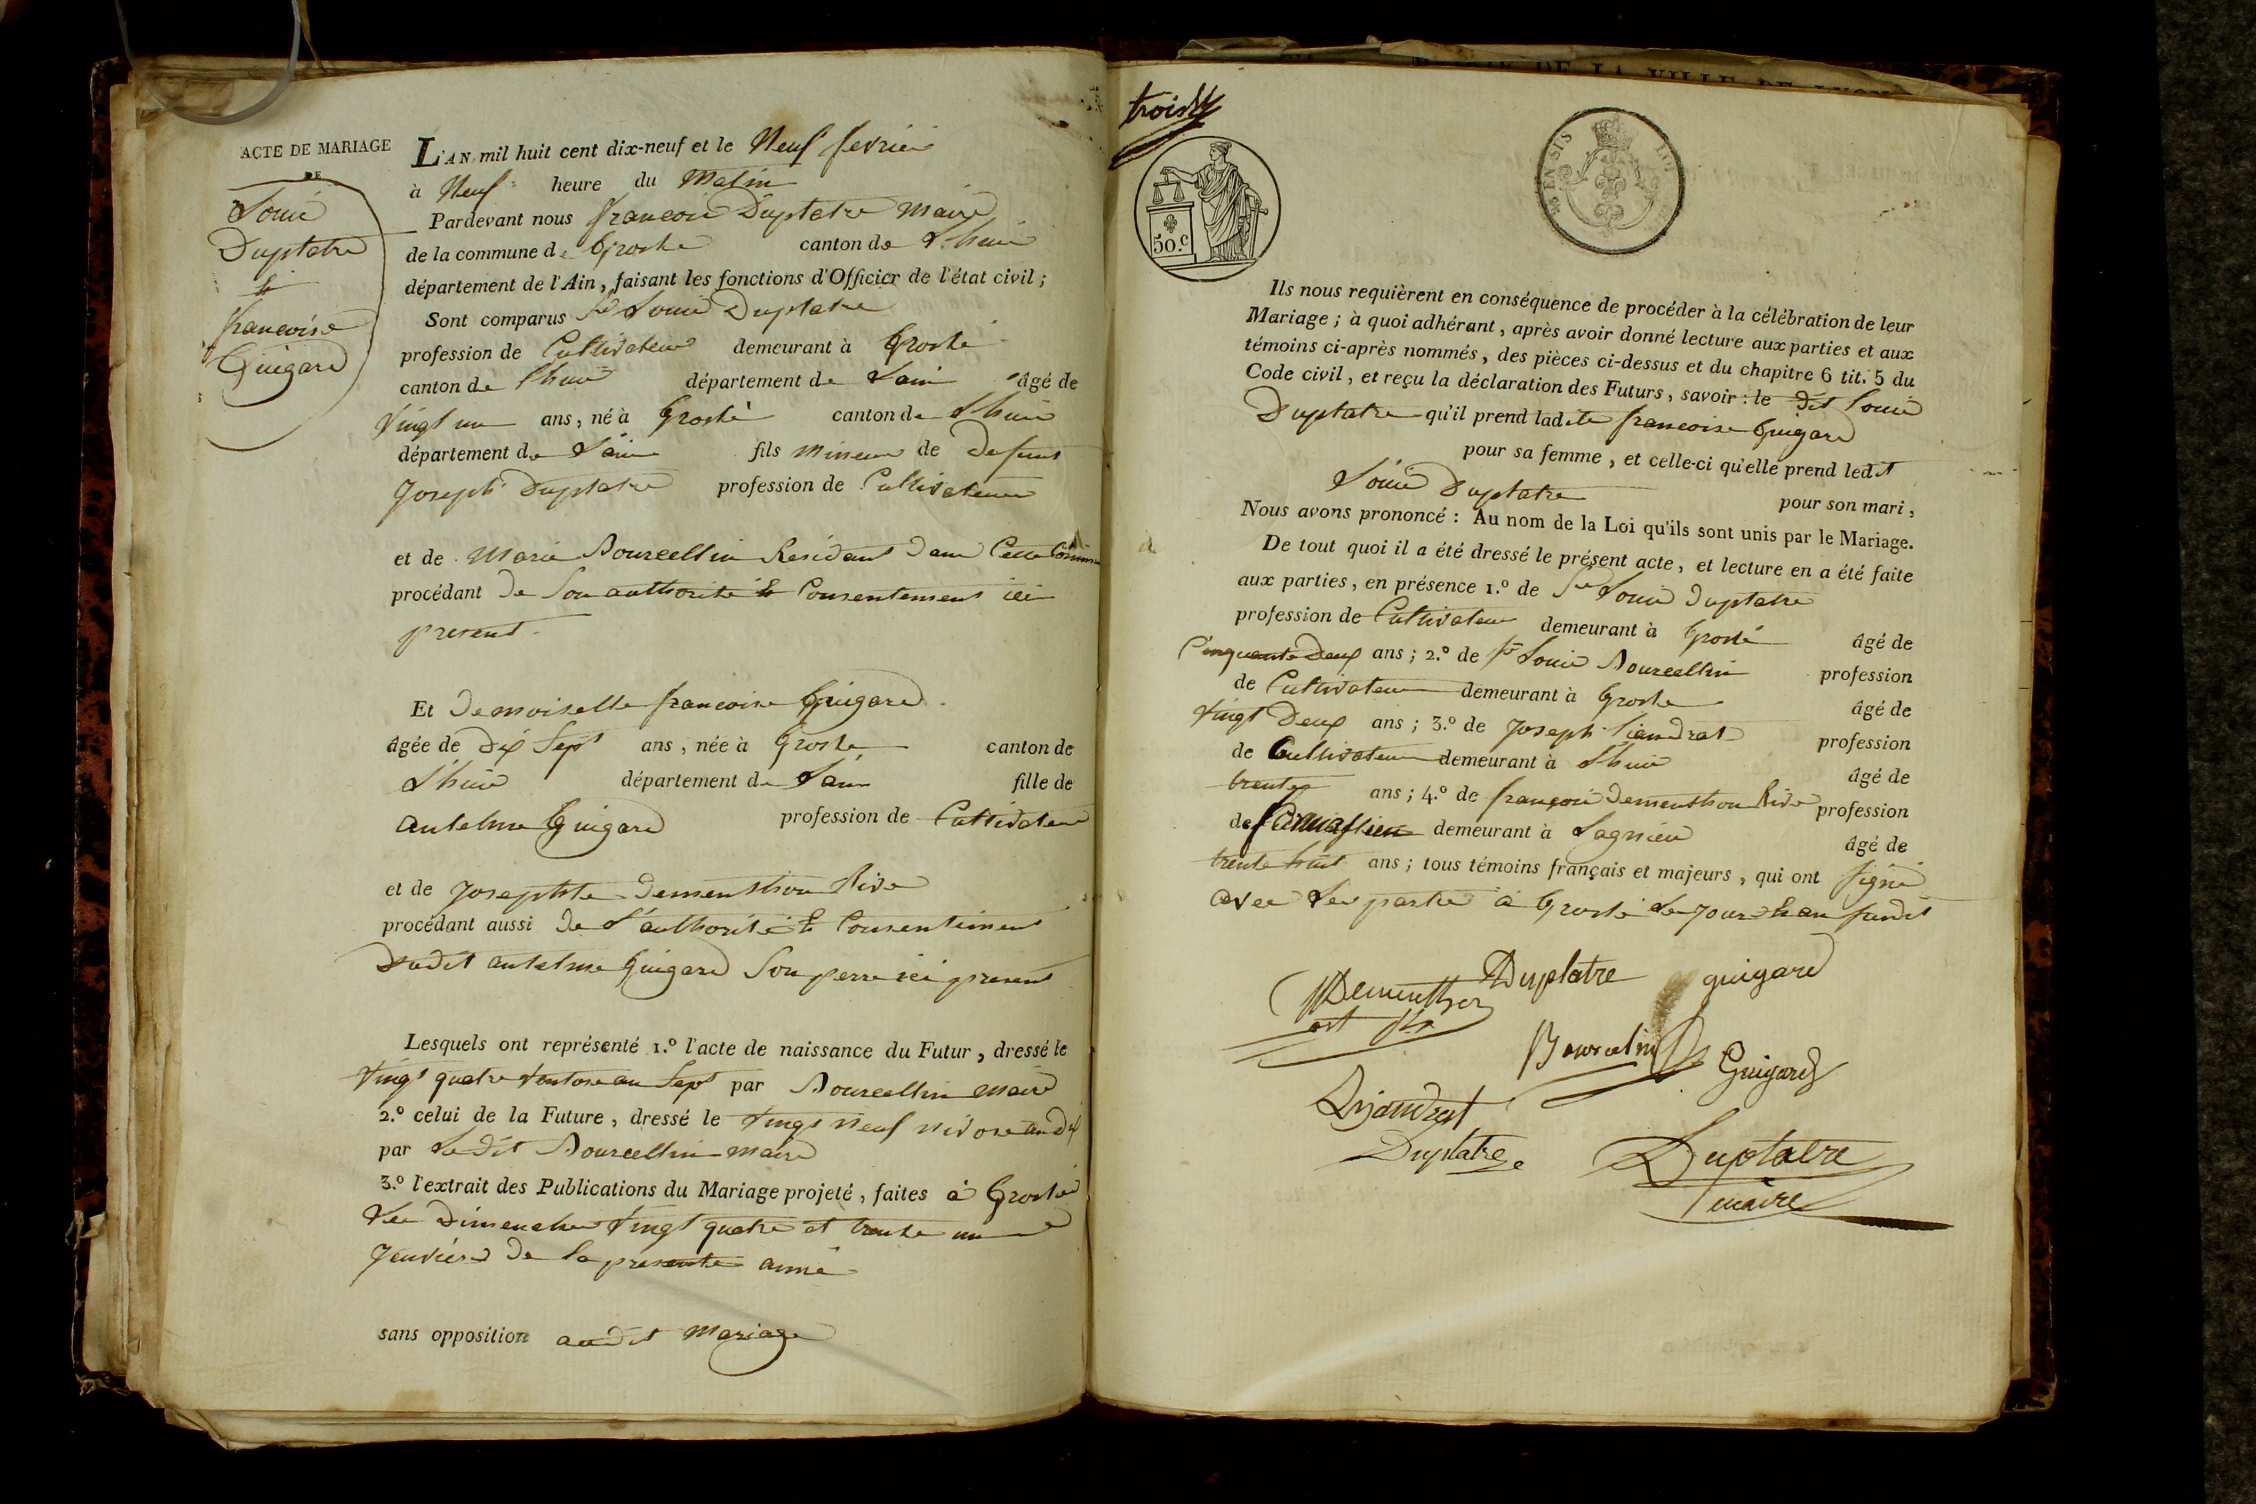 ACTE DE MARIAGE
DE
Louis
Duplatre
&
francoise
Guigard
L'AN mil huit cent dix-neuf et le Neuf fevrier
à Neuf heure du Matin
Pardevant nous francois Duplatre Maire
de la commune de Groslé canton de Lhuis
département de l'Ain, faisant les fonctions d'Officier de l'état civil;
Sont comparus Sr Louis Duplatre
profession de Cultivateur demeurant à Groslé
canton de Lhuis département de Lain âgé de
Vingt un ans, né à Groslé canton de Lhuis
département de Lain fils Mineur de Defunt
Joseph Duplatre profession de Cultivateur
et de Marie Bourcellin Residant dans Cette Commune
procédant de Son authorité & Consentement ici
present
Et Demoiselle francoise Guigard
âgée de Dix Sept ans, née à Groslé canton de
Lhuis département de Lain fille de
antelme Guigard profession de Cultivateur
et de Josephte Dementhon Rive
procédant aussi de L'authorité & Consentement
Dudit antelme Guigard Son perre ici present
Lesquels ont représenté 1.º l'acte de naissance du Futur, dressé le
Vingt quatre Ventose an Sept par Bourcellin Maire
2.º celui de la Future, dressé le Vingt Neuf nivose an Dix
par Ledit Bourcellin Maire
3.º l'extrait des Publications du Mariage projeté, faites à Groslé
Les Dimenche Vingt quatre et trente un
Jenvier De la presente anné
sans opposition audit Mariage
trois
50.c
Ils nous requièrent en conséquence de procéder à la célébration de leur
Mariage; à quoi adhérant, après avoir donné lecture aux parties et aux
témoins ci-après nommés, des pièces ci-dessus et du chapitre 6 tit. 5 du
Code civil, et reçu la déclaration des Futurs, savoir: le dit Louis
Duplatre qu'il prend ladite francoise Guigard
pour sa femme, et celle-ci qu'elle prend ledit
Louis Duplatre pour son mari,
Nous avons prononcé: Au nom de la Loi qu'ils sont unis par le Mariage.
De tout quoi il a été dressé le présent acte, et lecture en a été faite
aux parties, en présence 1.º de Sr Louis Duplatre
profession de Cultivateur demeurant à Groslé âgé de
Cinquante Deux ans; 2.º de Sr Louis Bourcellin profession
de Cultivateur demeurant à Groslé âgé de
Vingt Deux ans; 3.º de Joseph profession
de Cultivateur demeurant à Lhuis âgé de
trente ans; 4.º de françois Dementhon Rive profession
de demeurant à Lagnieu âgé de
trente huit ans; tous témoins français et majeurs, qui ont signé
avec Les partie à Groslé Le Jour & an susdit
Dementhon Duplatre guigard
Bourcelin Guigard
Duplatre Duplatre
maire